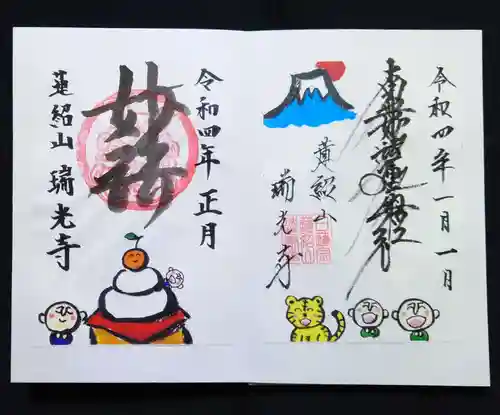 令和四年一月一日
南無妙法蓮華経
蓮紹山
瑞光寺
令和四年正月
妙
蓮紹山 瑞光寺